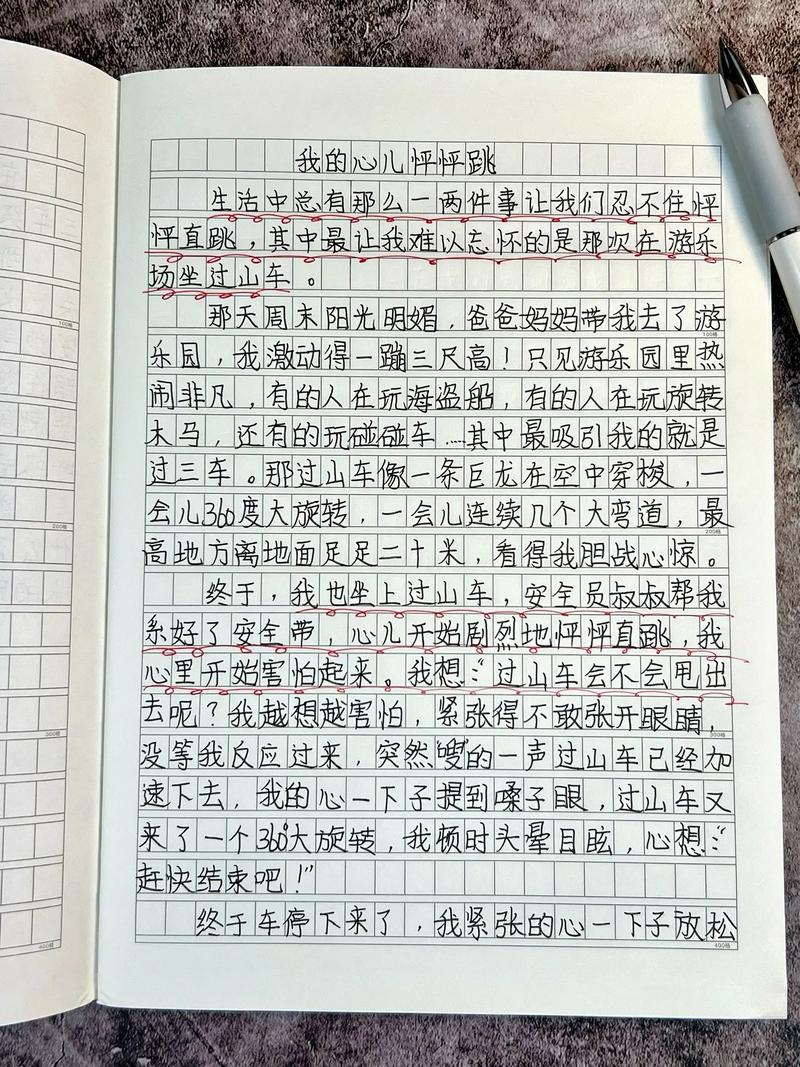 我的心儿怦怦跳
生活中总有那么一两件事让我们忍不住怦
怦直跳，其中最让我难以忘怀的是那次在游乐
场坐过山车。
那天周末阳光明媚，爸爸妈妈带我去了游
100格
乐园，我激动得一蹦三尺高！只见游乐园里热
闹非凡，有的人在玩海盗船，有的人在玩旋转
木马，还有的玩碰碰车……其中最吸引我的就是
过三车。那过山车像一条巨龙在空中穿梭，一
会儿360度大旋转，一会儿连续几个大弯道，最
200格
高地方离地面足足二十米，看得我胆战心惊。
终于，我也坐上过山车，安全员叔叔帮我
系好了安全带，心儿开始剧烈地怦怦直跳，我
心里开始害怕起来。我想：“过山车会不会甩出
去呢？我越想越害怕，紧张得不敢张开眼睛，
300格
没等我反应过来，突然“嗖”的一声过山车已经加
速下去，我的心一下子提到嗓子眼，过山车又
来了一个360°大旋转，我顿时头晕目眩，心想：“
赶快结束吧！”
终于车停下来了，我紧张的心一下子放松
400格
100格
200格
300格
400格